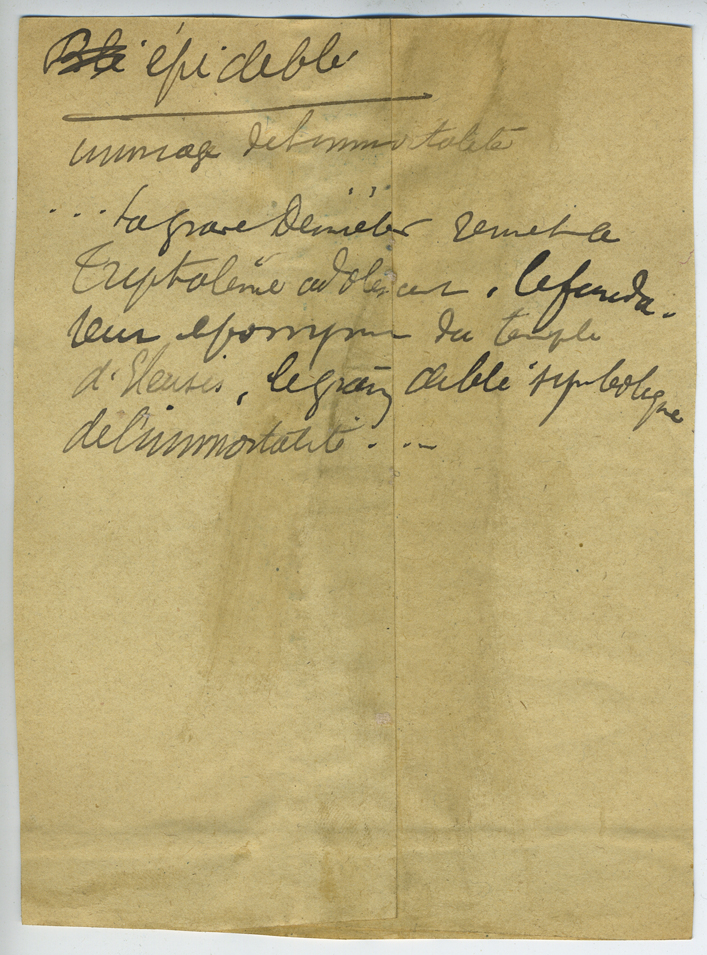 épi de blé
image de l'immortalité
... La grave Déméter remet à
Triptolème adolescent, le fonda-
teur éponyme du temple
d'Eleusis, le grain de blé symbolique
de l'immortalité...